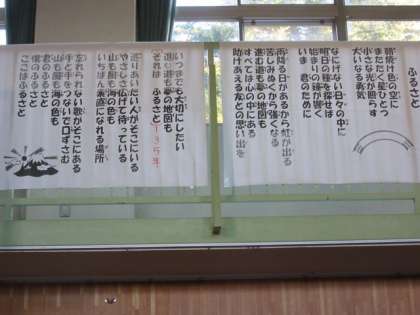 ふるさと
朝焼け色の空に
またたく星ひとつ
小さな光が照らす
大いなる勇気
なにげない日々の中に
明日の種を探せば
始まりの鐘が響く
いま 君のために
雨降る日があるから虹が出る
苦しみぬくから強くなる
進む道も夢の地図も
すべては心の中にある
助けあえる友との思い出を
いつまでも大切にしたい
進む道も夢の地図も
それは ふるさと 135年
巡りあいたい人がそこにいる
やさしさ広げて待っている
山も風も海の色も
いちばん素直になれる場所
忘れられない歌がそこにある
手と手をつないで口ずさむ
山も風も海の色も
君のふるさと
僕のふるさと
ここはふるさと